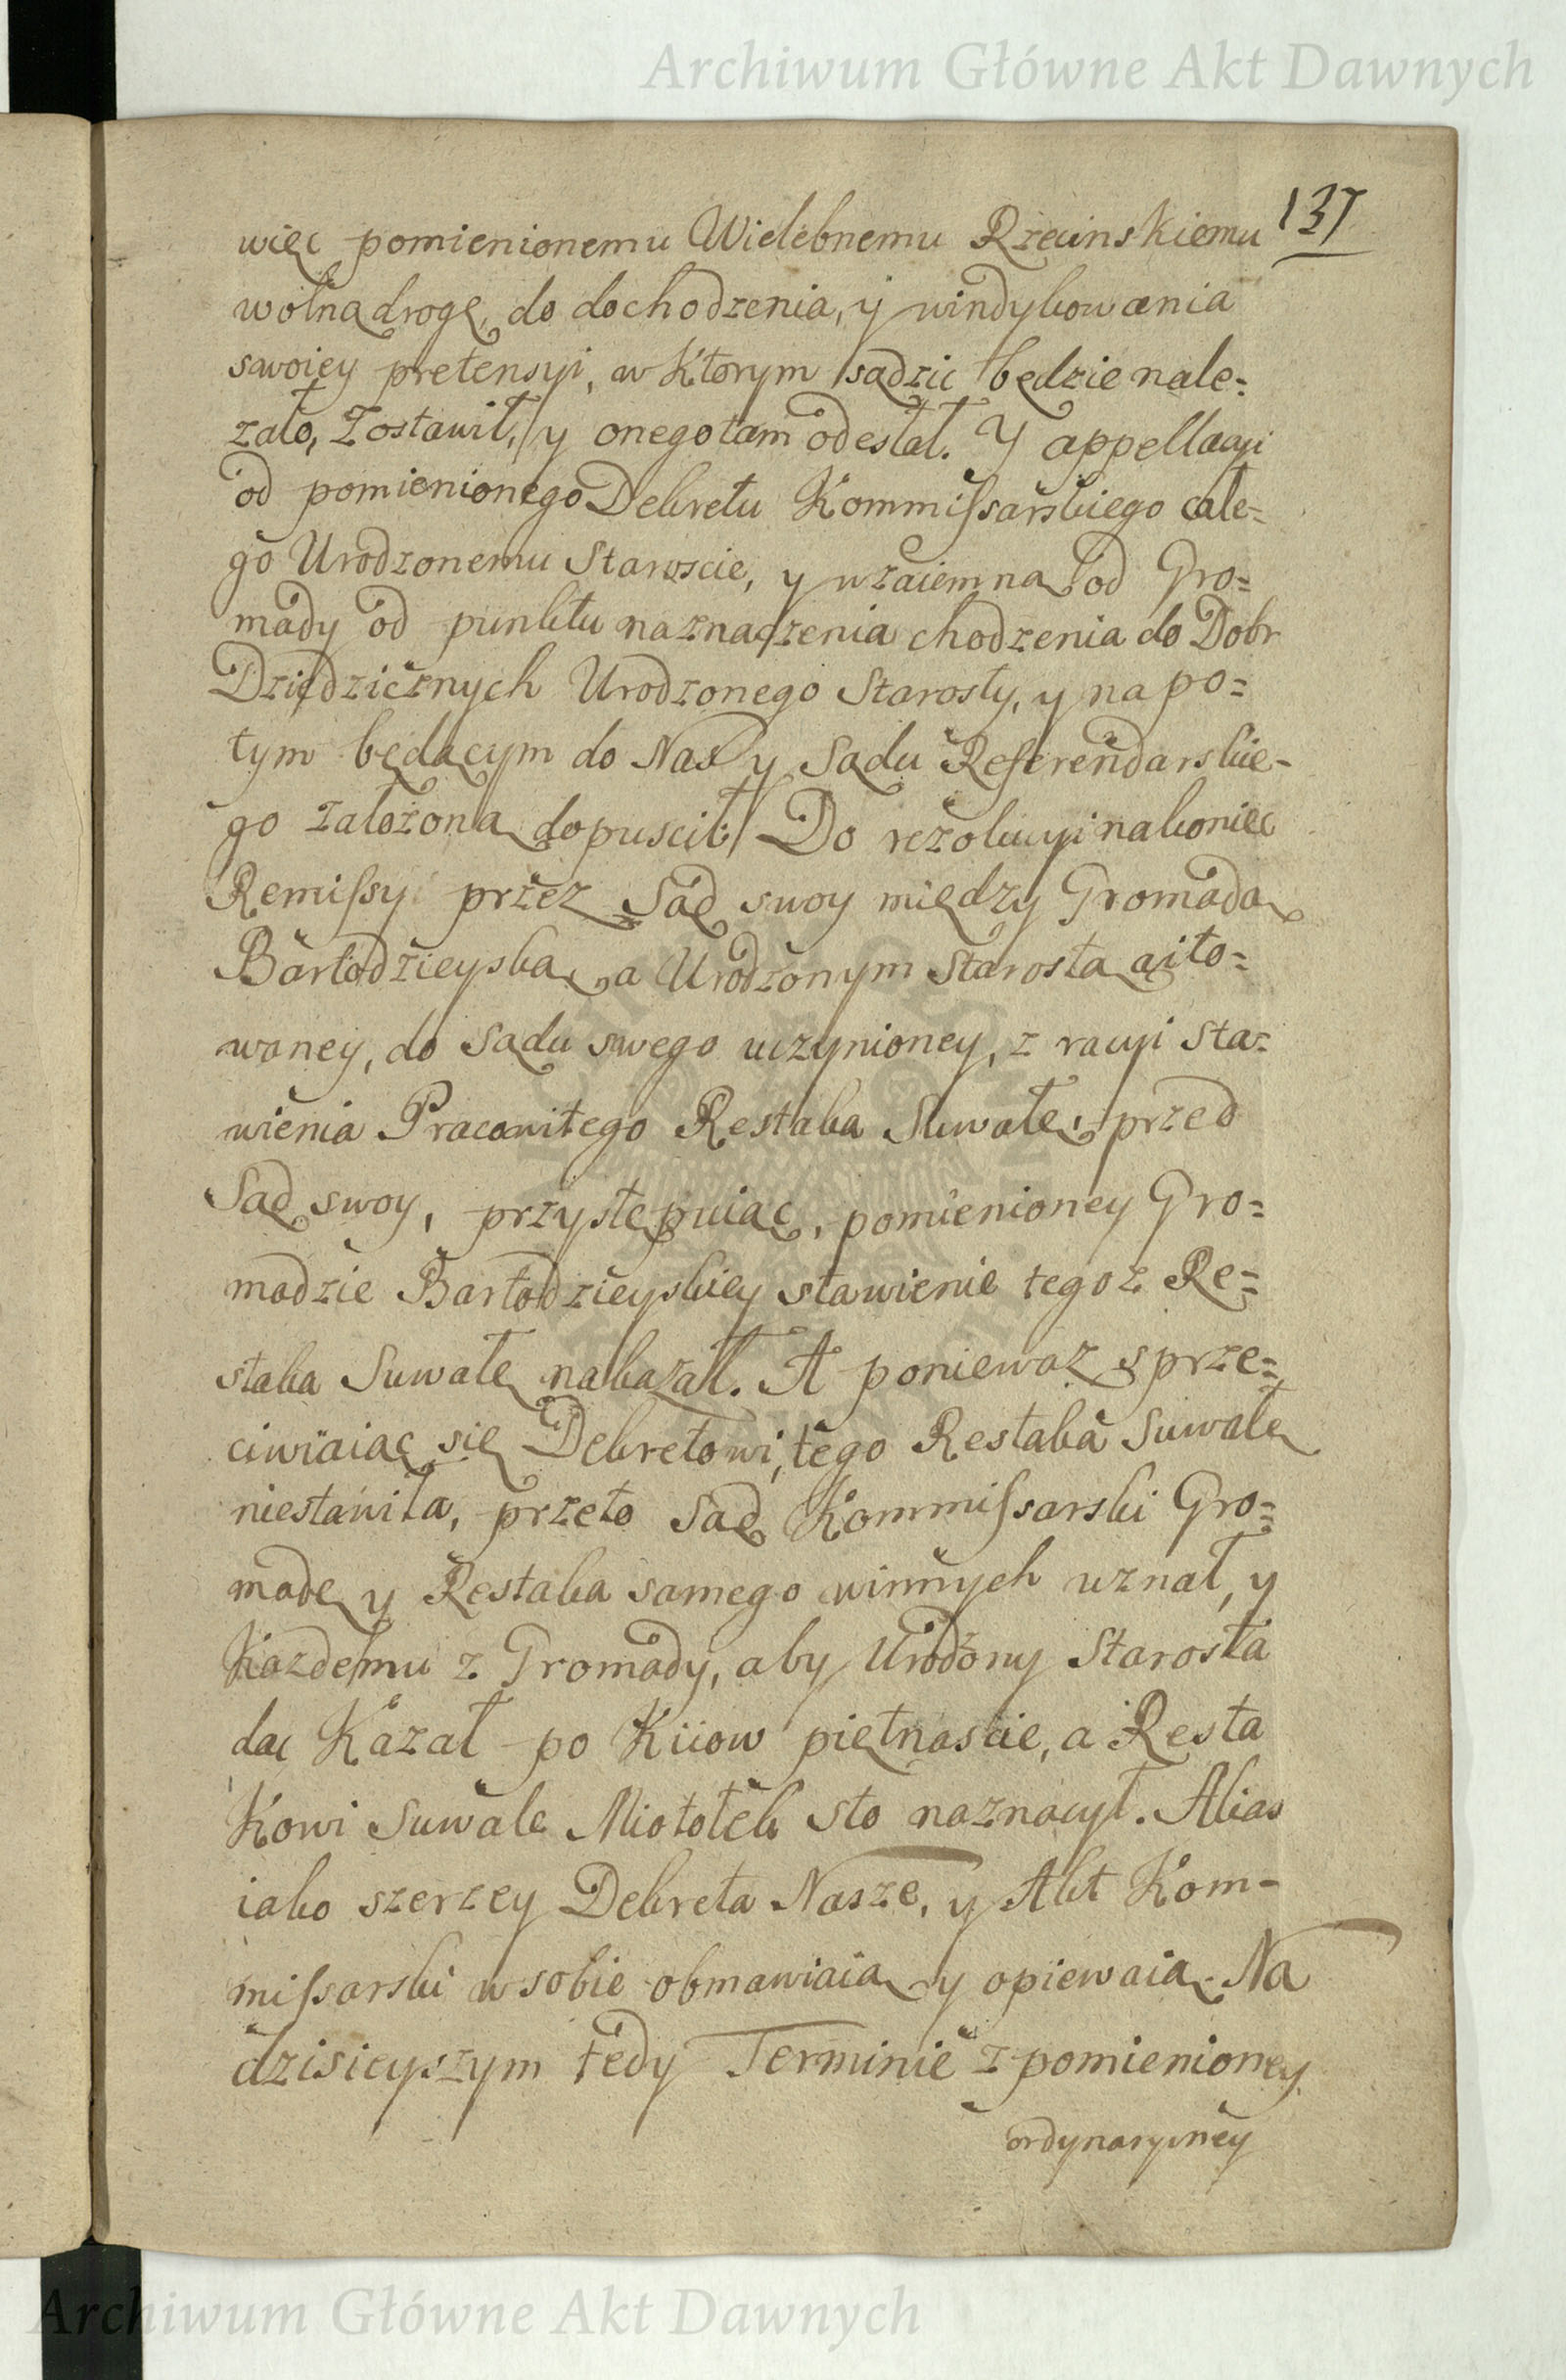 Archiwum Główne Akt Dawnych
137
więc pomienionemu Wielebnemu Rzecinskiemu
wolną drogę, do dochodzenia, y windykowania
swoiey pretensyi, w Ktorym sądzic będzie nale=
zało, Zostawił, y onego tam odesłał. Y appellacyi
od pomienionego Dekretu Kommissarskiego całe=
go Urodzonemu Staroscie, y wzaiemną od Gro=
mady od punktu naznaczenia chodzenia do Dobr
Dziedzicznych Urodzonego Starosty, y na po=
tym będącym do Nas y Sądu Referendarskie-
go założoną dopuscił. Do rezolucyi nakoniec
Remissy przez Sąd swoy między Gromadą
Bartodzieyską, a Urodzonym Starostą cito=
waney, do Sądu swego uczynioney, z racyi Sta=
wienia Pracowitego Restaka Suwałę, przed
Sąd swoy, przystępuiąc, pomienioney Gro=
madzie Bartodzieyskiey stawienie tegoz Re=
staka Suwałę nakazał. A poniewaz sprze=
ciwiaiąc się Dekretowi, tego Restaka Suwałę
niestawiła, przeto Sąd Kommissarski Gro=
madę y Restaka samego winnych uznał, y
Kazdemu z Gromady, aby Urodzony Starosta
dac Kazał po Kiiow piętnascie, a Resta
Kowi Suwale Miotołek sto naznaczył. Alias
iako szerzey Dekreta Nasze, y Akt Kom-
missarski w sobie obmawiaią y opiewaią. Na
dzisieyszym tedy Terminie z pomienioney
ordynaryiney
Archiwum Główne Akt Dawnych